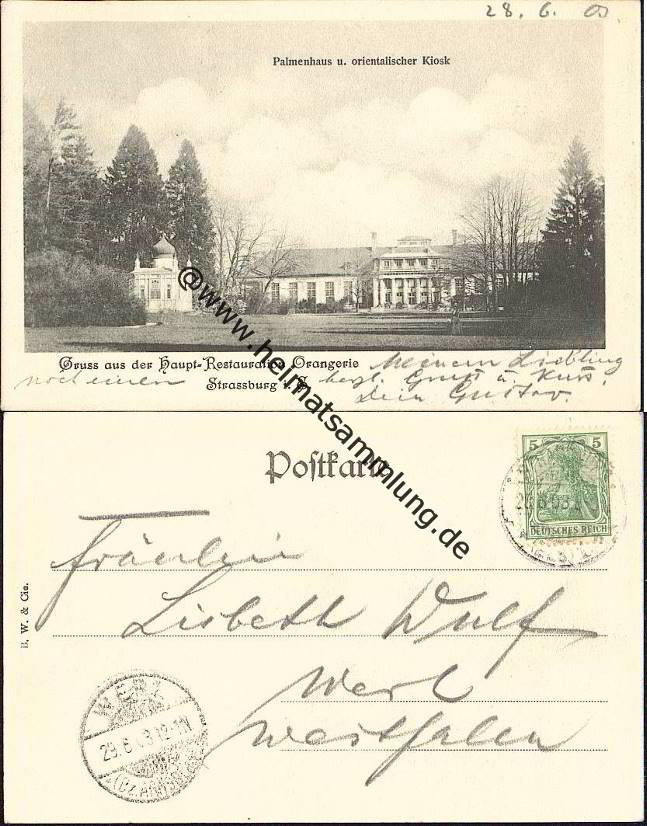 28. 6. 03.
Palmenhaus u. orientalischer Kiosk
Gruss aus der Haupt-Restauration Orangerie
Strassburg i. E.
Meinem Liebling
noch einen herzl. Gruß u. Kuss.
Dein Gustav.
@www.heimatsammlung.de
Postkarte
5 5
DEUTSCHES REICH
Fräulein
Lisbeth Wulf
Werl
Westfalen
B. W. & Cie.
WERL
29.6.03.12-1N